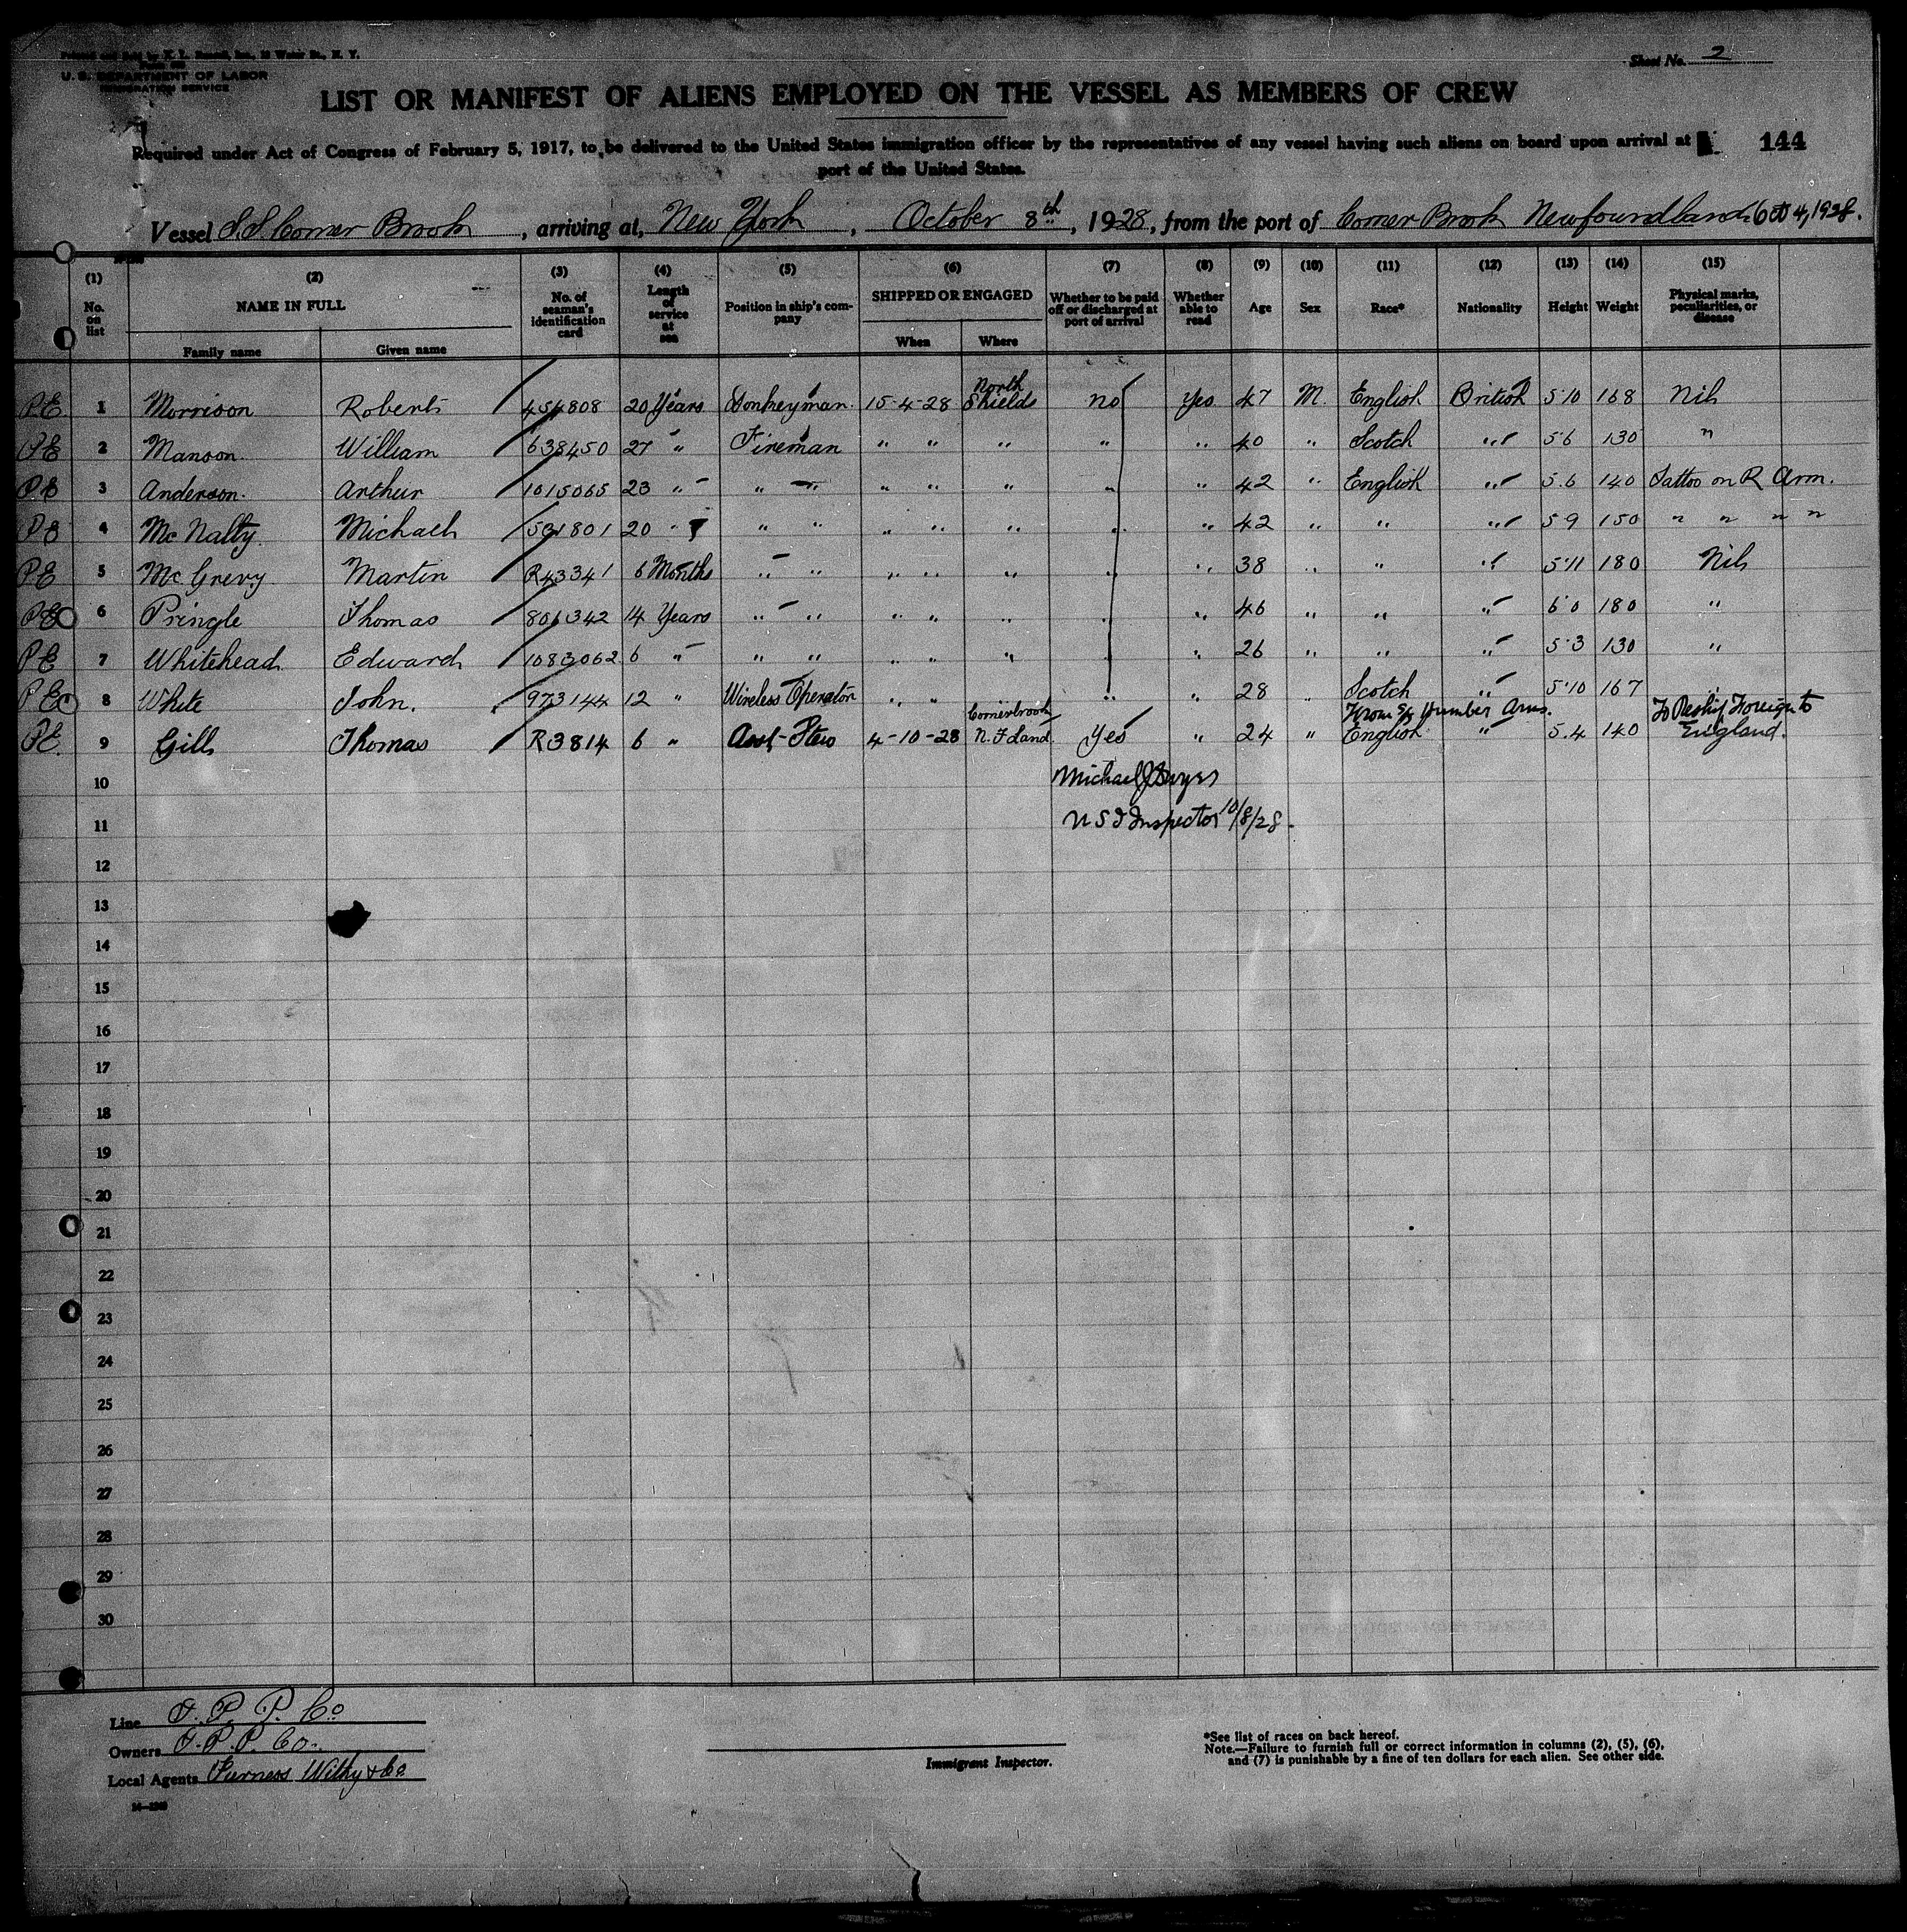 Sheet No. 2
U. S. DEPARTMENT OF LABOR
IMMIGRATION SERVICE
LIST OR MANIFEST OF ALIENS EMPLOYED ON THE VESSEL AS MEMBERS OF CREW
Required under Act of Congress of February 5, 1917, to be delivered to the United States immigration officer by the representatives of any vessel having such aliens on board upon arrival at
144
port of the United States.
Vessel S.S. Corner Brook, arriving at, New York, October 8th, 1928, from the port of Corner Brook Newfoundland Oct 4, 1928.
(1) (2) (3) (4) (5) (6) (7) (8) (9) (10) (11) (12) (13) (14) (15)
No. on list NAME IN FULL Family name Given name No. of seaman's identification card Length of service at sea Position in ship's company SHIPPED OR ENGAGED When Where Whether to be paid off or discharged at port of arrival Whether able to read Age Sex Race* Nationality Height Weight Physical marks, peculiarities, or disease
PE 1 Morrison Robert 454808 20 Years Donkeyman 15-4-28 North Shields no Yes 47 M. English British 5·10 168 Nil
PE 2 Manson William 638450 27 " Fireman " " " " " 40 " Scotch " 5·6 130 "
PE 3 Anderson Arthur 1015065 23 " " " " " " " " 42 " English " 5.6 140 Tattoo on R Arm.
PE 4 McNalty Michael 501801 20 " " " " " " " " 42 " " " 5 9 150 " " " "
PE 5 McGrevy Martin R43341 6 Months " " " " " " " 38 " " " 5·11 180 Nil
PE 6 Pringle Thomas 801342 14 Years " " " " " " " 46 " " " 6·0 180 "
PE 7 Whitehead Edward 1083062 6 " " " " " " " " 26 " " " 5·3 130 "
PE 8 White John. 973144 12 " Wireless Operator " " " " 28 " Scotch " 5·10 167 "
From S/S Humber Arm. To Reship Foreign to
PE 9 Gill Thomas R3814 6 " Asst Stew 4-10-28 Cornerbrook N.F Land Yes " 24 " English " 5.4 140 England.
10 Michael J Dwyer
11 U S I Inspector 10/8/28
12
13
14
15
16
17
18
19
20
21
22
23
24
25
26
27
28
29
30
Line I. P. P. Co
Owners I. P. P. Co.
Local Agents Furness Withy & Co
Immigrant Inspector.
*See list of races on back hereof.
Note.—Failure to furnish full or correct information in columns (2), (5), (6),
and (7) is punishable by a fine of ten dollars for each alien. See other side.